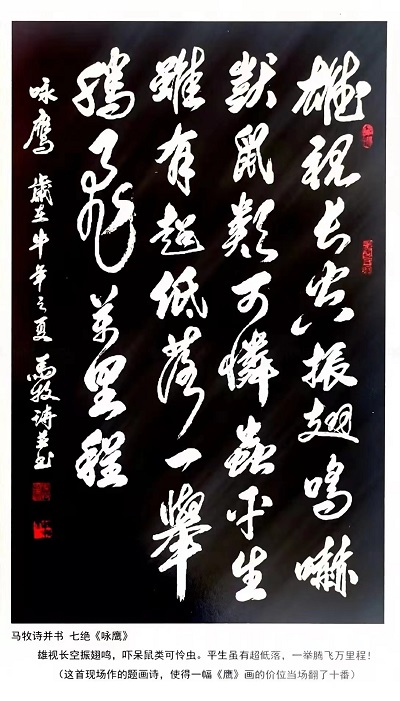 雄視长空振翅鳴嚇
獃鼠類可憐蟲平生
雖有超低落一舉
騰飛萬里程
咏鷹 歲在牛年之夏 馬牧詩並书
马牧诗并书 七绝《咏鹰》
雄视长空振翅鸣，吓呆鼠类可怜虫。平生虽有超低落，一举腾飞万里程！
（这首现场作的题画诗，使得一幅《鹰》画的价位当场翻了十番）